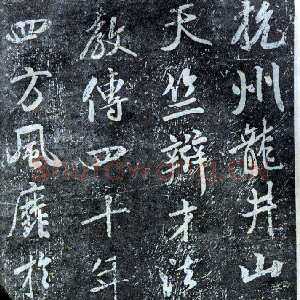 杭州龍井山
天竺辯才法
教傳四十年
四方風靡於